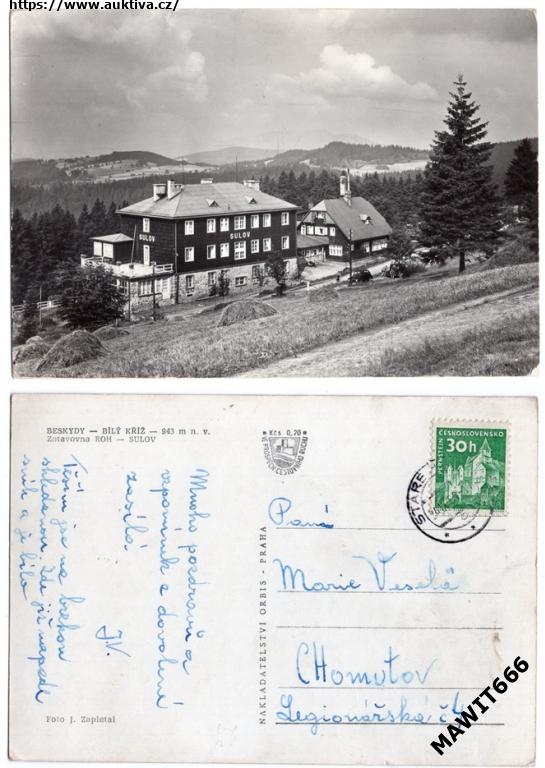 https://www.auktiva.cz/
SULOV
SULOV
BESKYDY — BÍLÝ KŘÍŽ — 943 m n. v.
Zotavovna ROH — SULOV
Kčs 0,20
VE PROSPĚCH CESTOVNÍHO RUCHU
ČESKOSLOVENSKO
30h
PERNŠTEJN
STARÉ
Mnoho pozdravů a
vzpomínek z dovolené
zasílá
J.V.
Těším se na
Zde již napadl
sníh a je bílo
Paná
Marie Veselá
CHomutov
Legionářská č.
NAKLADATELSTVÍ ORBIS - PRAHA
Foto J. Zapletal
MAWIT666